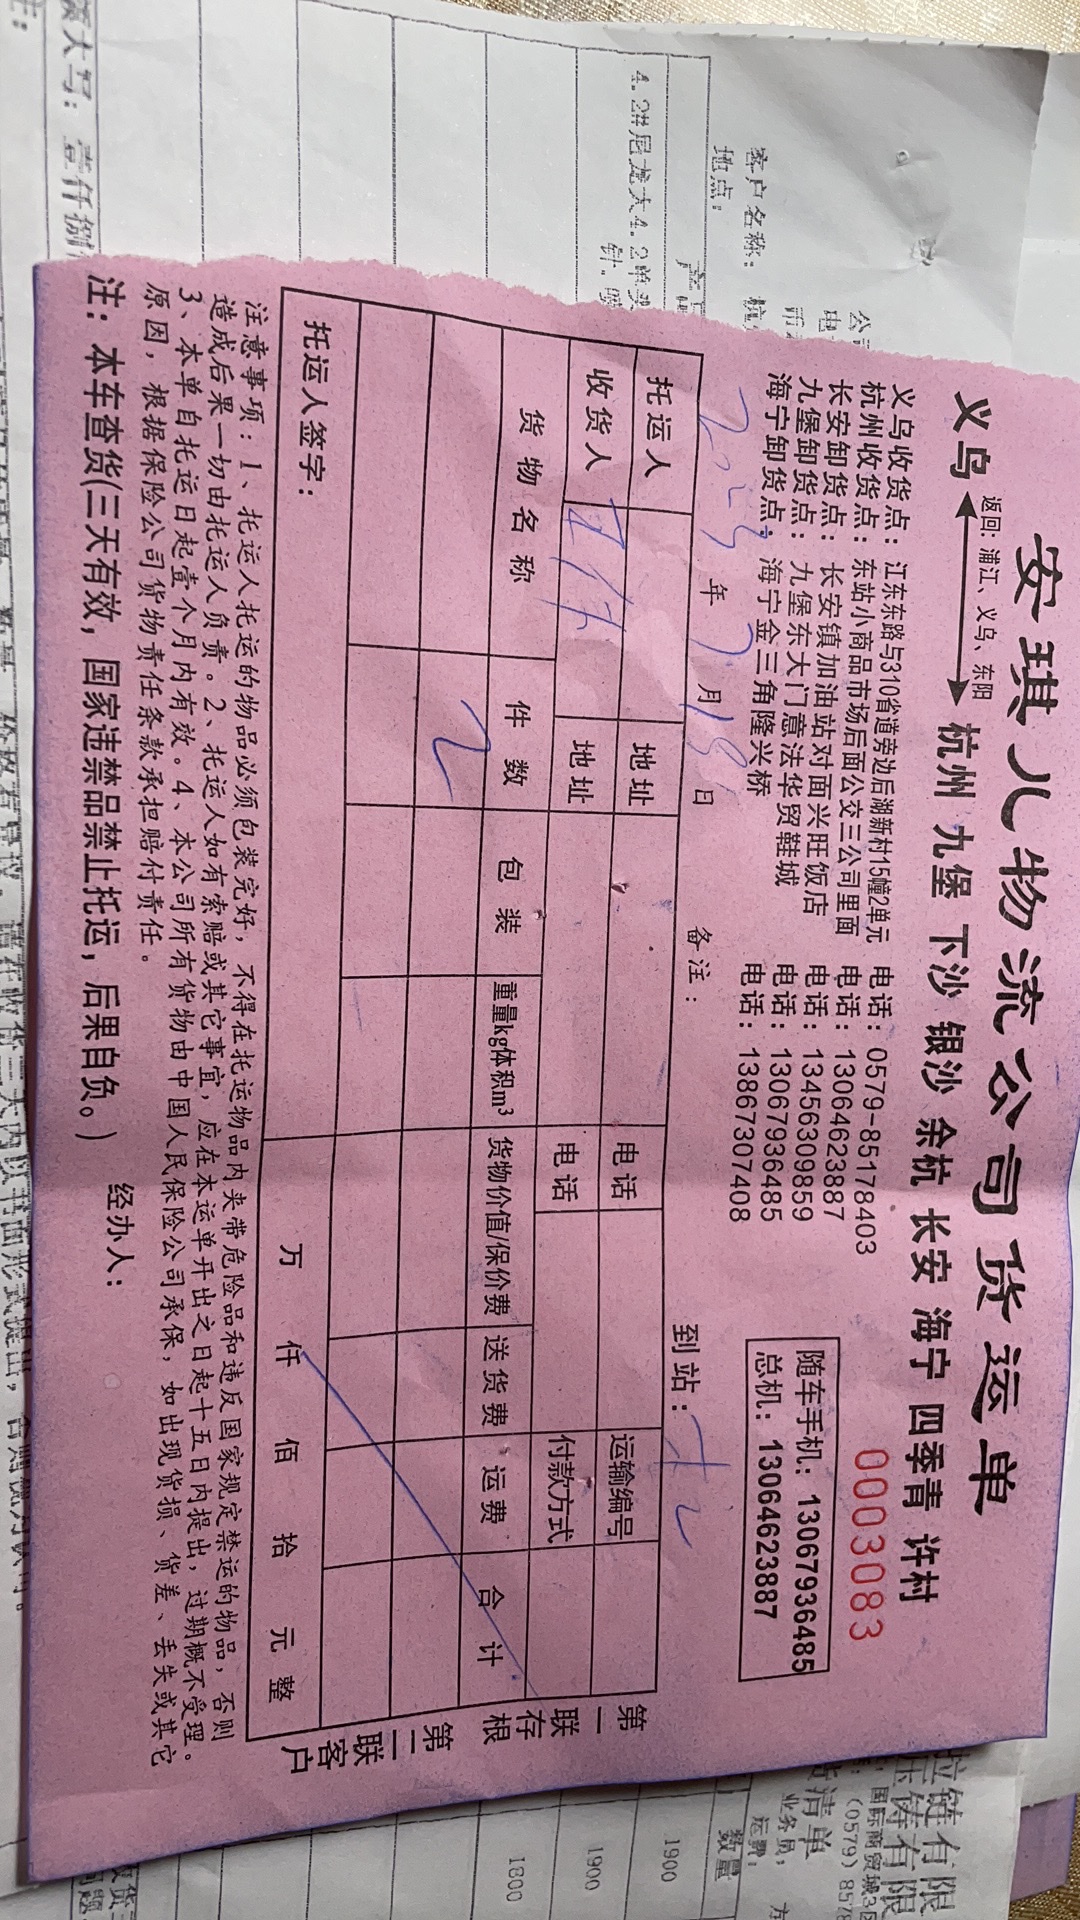 安琪儿物流公司货运单
返回: 浦江、义乌、东阳
义乌 杭州 九堡 下沙 银沙 余杭 长安 海宁 四季青 许村
0003083
义乌收货点: 江东东路与310省道旁边后湖新村15幢2单元 电话: 0579-85178403
杭州收货点: 东站小商品市场后面公交三公司里面 电话: 13064623887
长安卸货点: 长安镇加油站对面兴旺饭店 电话: 13456309859
九堡卸货点: 九堡东大门意法华贸鞋城 电话: 13067936485
海宁卸货点: 海宁金三角隆兴桥 电话: 13867307408
随车手机: 13067936485
总机: 13064623887
年 7 月 日 备注: 到站:
托运人 地址 电话 运输编号
收货人 地址 电话 付款方式
货物名称 件数 包装 重量kg体积m³ 货物价值/保价费 送货费 运费 合计
2
万 仟 佰 拾 元整
托运人签字:
第一联存根 第二联客户
注意事项: 1、托运人托运的物品必须包装完好, 不得在托运物品内夹带危险品和违反国家规定禁运的物品, 否则
造成后果一切由托运人负责。2、托运人如有索赔或其它事宜, 应在本运单开出之日起十五日内提出, 过期概不受理。
3、本单自托运日起壹个月内有效。4、本公司所有货物由中国人民保险公司承保, 如出现货损、货差、丢失或其它
原因, 根据保险公司货物责任条款承担赔付责任。
注: 本车查货(三天有效, 国家违禁品禁止托运, 后果自负。) 经办人:
客户名称: 杭
地点:
4.2#尼龙大4.2单头
拉链有限
压铸有限
国际商贸城3区
(0579) 8578
清单
业务员:
运费:
数量
1900
1900
1800
大写: 壹仟捌